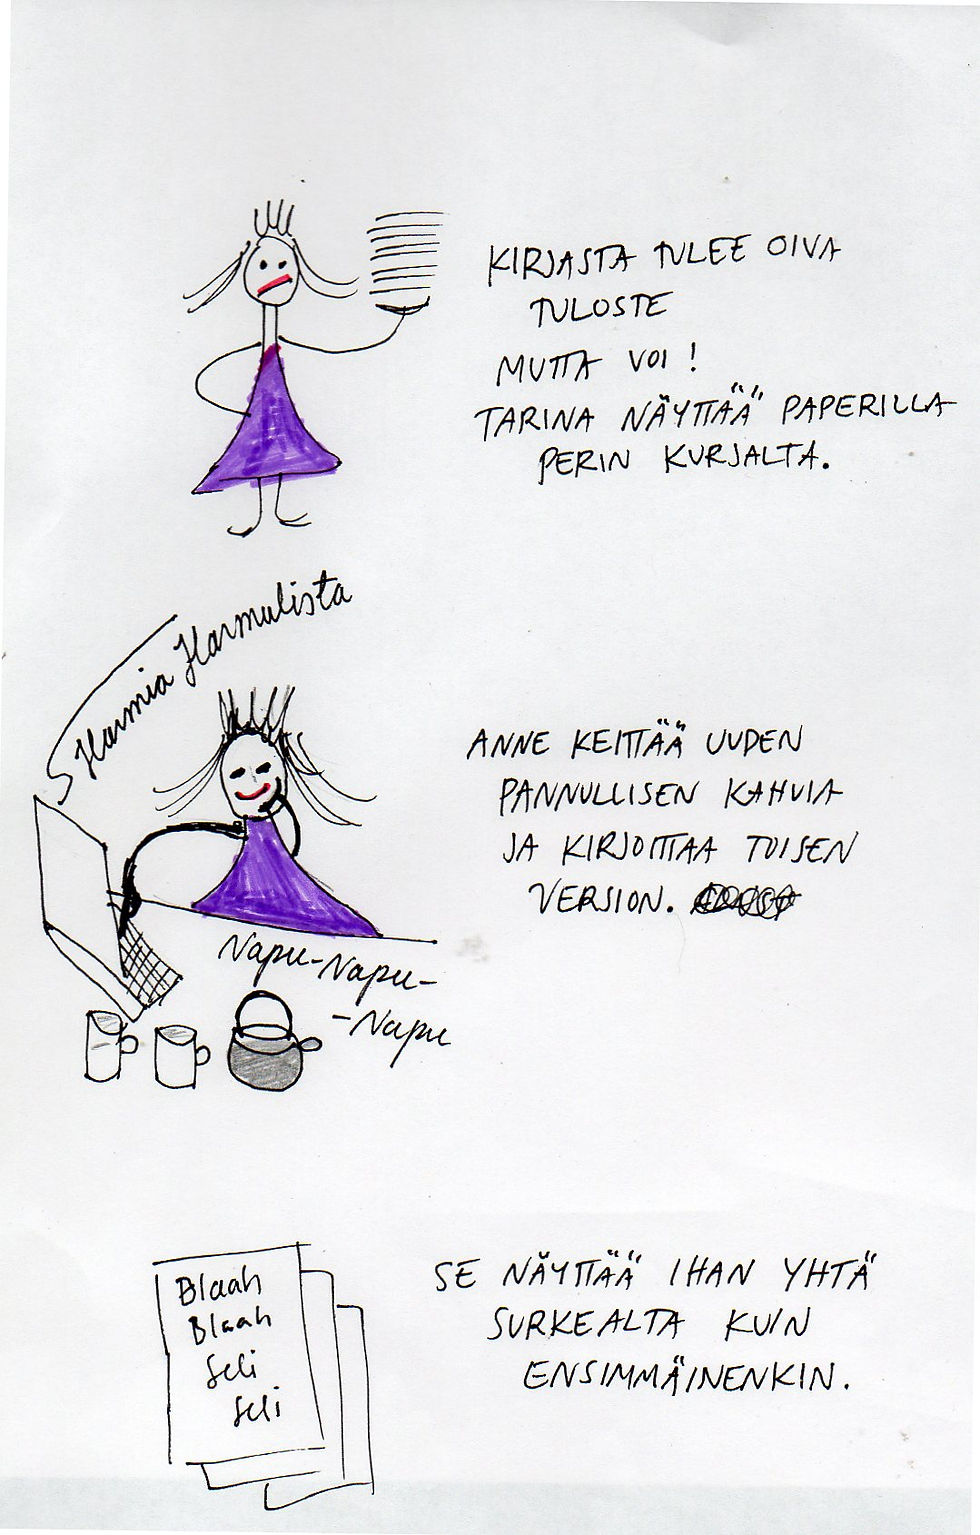 KIRJASTA TULEE OIVA
TULOSTE
MUTTA VOI!
TARINA NÄYTTÄÄ PAPERILLA
PERIN KURJALTA.
Harmia Harmulista
ANNE KEITTÄÄ UUDEN
PANNULLISEN KAHVIA
JA KIRJOITTAA TOISEN
VERSION.
Napu-Napu-
-Napu
Blaah
Blaah
Seli
Seli
SE NÄYTTÄÄ IHAN YHTÄ
SURKEALTA KUIN
ENSIMMÄINENKIN.